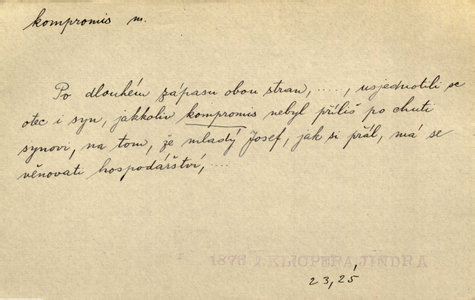 kompromis m.
Po dlouhém zápasu obou stran, ...., usjednotili se
otec i syn, jakkoliv kompromis nebyl příliš po chuti
synovi, na tom, že mladý Josef, jak si přál, má se
věnovati hospodářství, ....
1878 KLICPERA JINDRA
23, 25